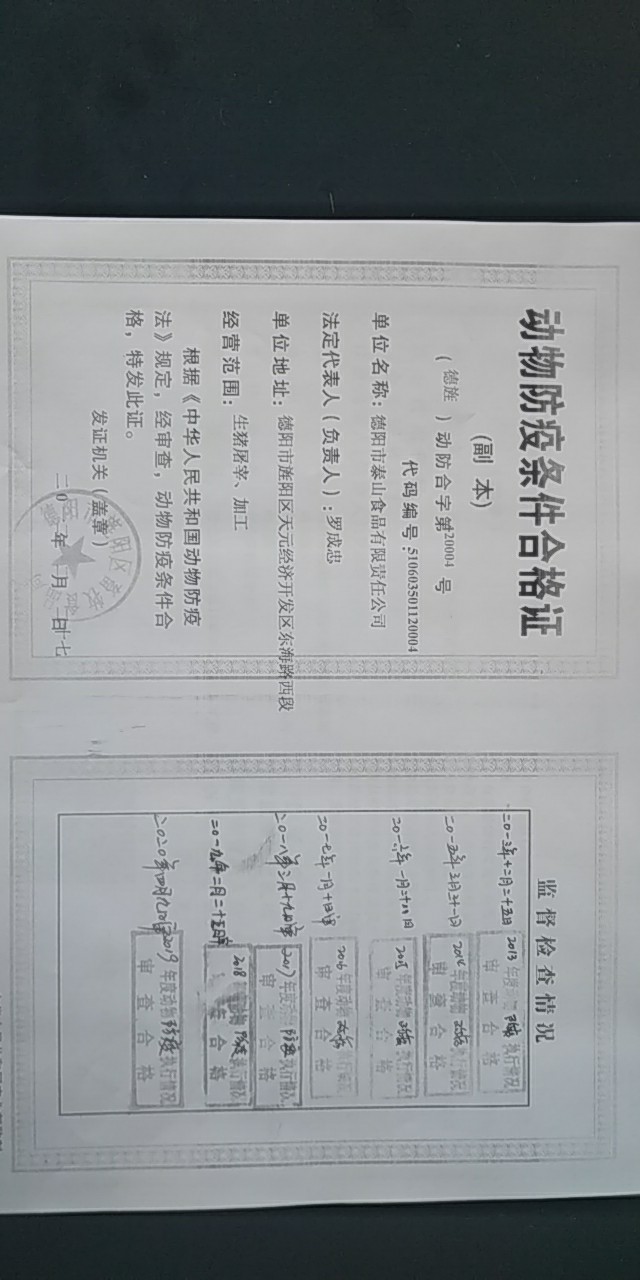 动物防疫条件合格证
(副 本)
( 德旌 ) 动防合字 第20004 号
代码编号:510603501120004
单位名称: 德阳市泰山食品有限责任公司
法定代表人(负责人): 罗成忠
单位地址: 德阳市旌阳区天元经济开发区东海路西段
经营范围: 生猪屠宰、加工
根据《中华人民共和国动物防疫
法》规定, 经审查, 动物防疫条件合
格, 特发此证。
发证机关(盖章)
监督检查情况
二0一三年十二月二十五日 2013 年度 执行情况
审查合格
二0一五年三月二十一日 2014 年度动物 执行情况
审查合格
二0一六年一月二十八日 2015 年度动物 执行情况
审查合格
二0一七年一月十日 2016 年度动物 执行情况
审查合格
二0一八年二月十九日 2017 年度动物防疫执行情况
审查合格
二0一九年二月二十五日 2018 年度动物防疫执行情况
审查合格
二0二0年四月九日 2019 年度动物防疫执行情况
审查合格